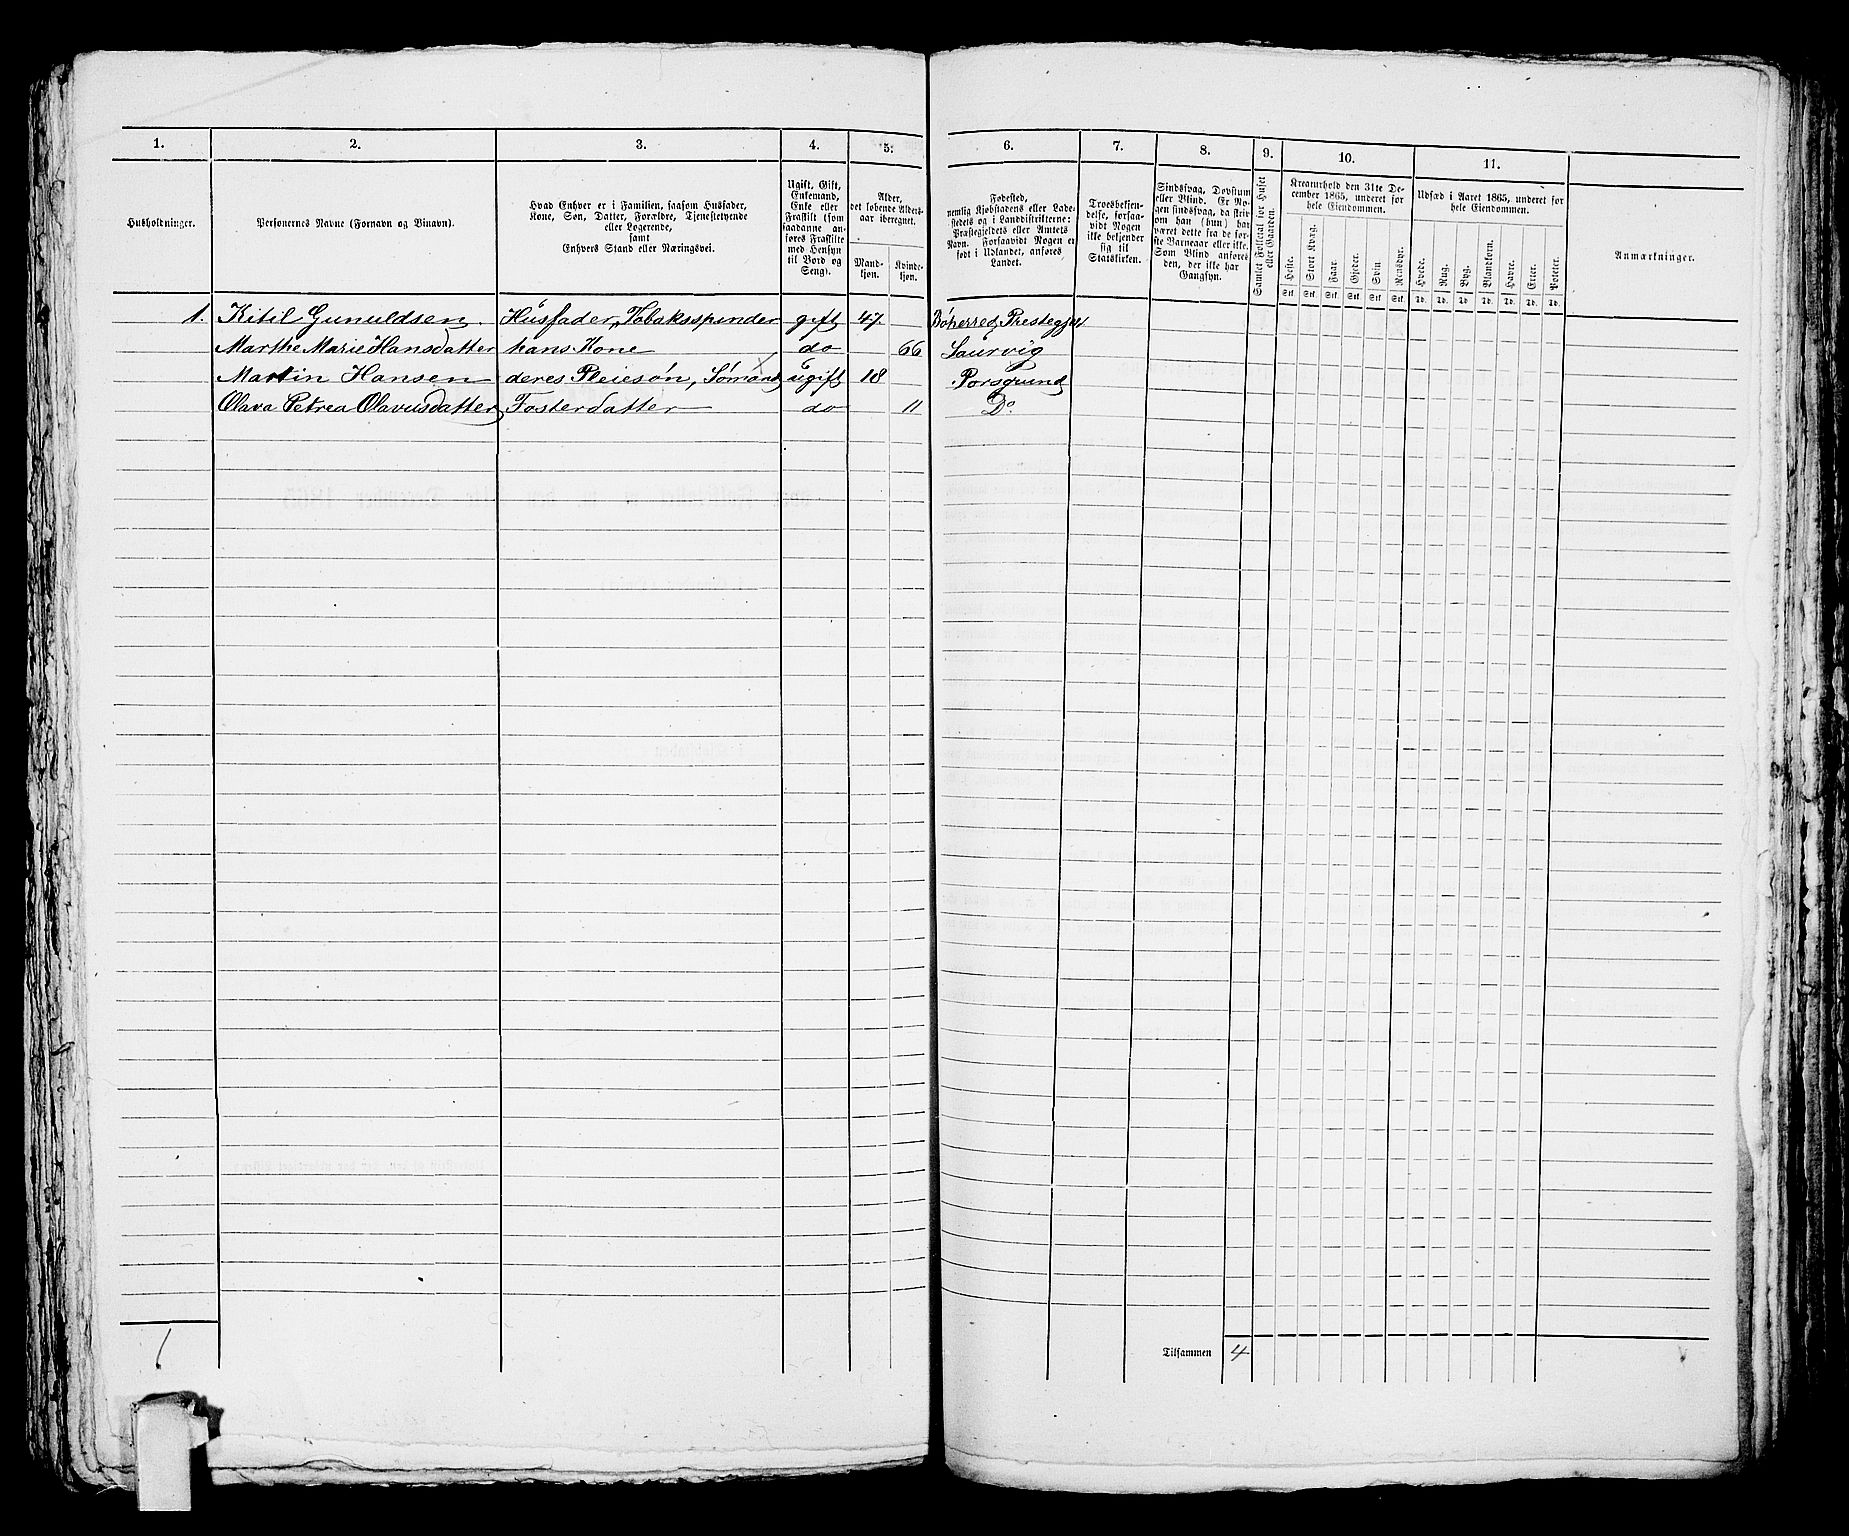 1. 2. 3. 4. 5. 6. 7. 8. 9. 10. 11.
Husholdninger.
Personernes Navne (Fornavn og Binavn).
Hvad Enhver er i Familien, saasom Husfader,
Kone, Søn, Datter, Forældre, Tjenestetyende
eller Logerende,
samt
Enhvers Stand eller Næringsvei.
Ugift, Gift,
Enkemand,
Enke eller
Fraskilt (som
saadanne an-
føres Fraskilte
med Hensyn
til Bord og
Seng).
Alder,
det løbende Alders-
aar iberegnet.
Mand-
kjøn.
Kvinde-
kjøn.
Fødested,
nemlig Kjøbstadens eller Lade-
stedets og i Landdistrikterne:
Præstegjeldets eller Amtets
Navn. Forsaavidt Nogen er
født i Udlandet, anføres
Landet.
Troesbekjen-
delse, forsaa-
vidt Nogen
ikke bekjender
sig til
Statskirken.
Sindssvag, Døvstum
eller Blind. Er No-
gen sindssvag, da skriv
om han (hun) har
været dette fra de før-
ste Barneaar eller ikke.
Som Blind anføres
den, der ikke har
Gangsyn.
Samlet Folketal for Huset
eller Gaarden.
Kreaturhold den 31te De-
cember 1865, underet for
hele Eiendommen.
Heste. Stort Kvæg. Faar. Gjeder. Svin Rensdyr.
Stk. Stk. Stk. Stk. Stk. Stk.
Udsæd i Aaret 1865, underet for
hele Eiendommen.
Hvede. Rug. Byg. Blandkorn. Havre. Erter. Poteter.
Td. Td. Td. Td. Td. Td. Td.
Anmærkninger.
1. Kitil Gunuldsen. Husfader, Tobaksspinder gift 47. Böherred Prestegjel
Marthe Marie Hansdatter hans Kone do 66 Laurvig
Martin Hansen deres Pleiesøn, Sømand ugift 18 Porsgrund
Olava Petrea Olavusdatter Fosterdatter do 11 Do.
1
Tilsammen 4